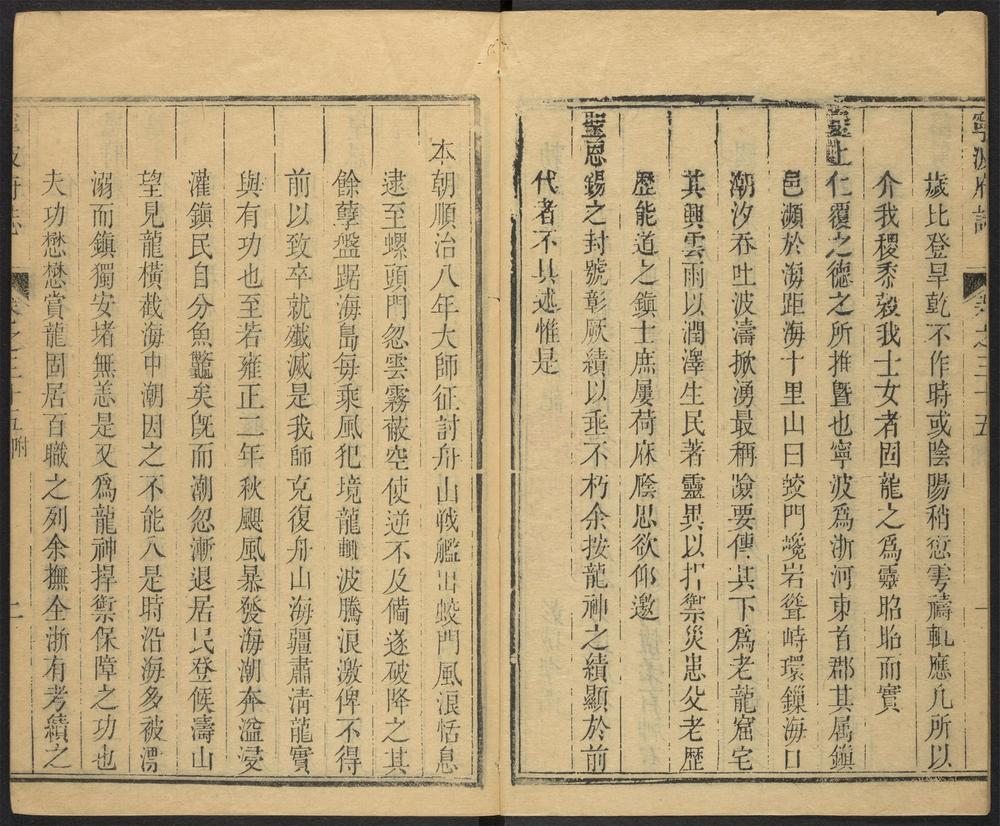 寧波府志 卷之三十五
歲比登旱乾不作時或陰陽稍愆雩禱輒應凡所以
介我稷黍穀我士女者固龍之爲靈昭昭而實
聖上仁覆之德之所推暨也寧波爲浙河東首郡其属鎮
邑瀕於海距海十里山曰蛟門巉岩聳峙環鏁海口
潮汐吞吐波濤掀湧最稱險要傳其下爲老龍窟宅
其興雲雨以潤澤生民著靈異以扞禦災患父老歷
歷能道之鎮士庶屢荷庥廕思欲仰邀
聖恩錫之封號彰厥績以垂不朽余按龍神之績顯於前
代者不具述惟是
本朝順治八年大師征討舟山戰艦出蛟門風浪恬息
逮至螺頭門忽雲霧蔽空使逆不及備遂破降之其
餘孽盤踞海島每乘風犯境龍輒波騰浪激俾不得
前以致卒就殲滅是我師克復舟山海疆肅清龍實
與有功也至若雍正二年秋颶風暴發海潮奔溢浸
灌鎮民自分魚鼈矣旣而潮忽漸退居民登候濤山
望見龍橫截海中潮因之不能入是時沿海多被漂
溺而鎮獨安堵無恙是又爲龍神捍禦保障之功也
夫功懋懋賞龍固居百職之列余撫全浙有考績之
寧波府志 卷之三十五附 二